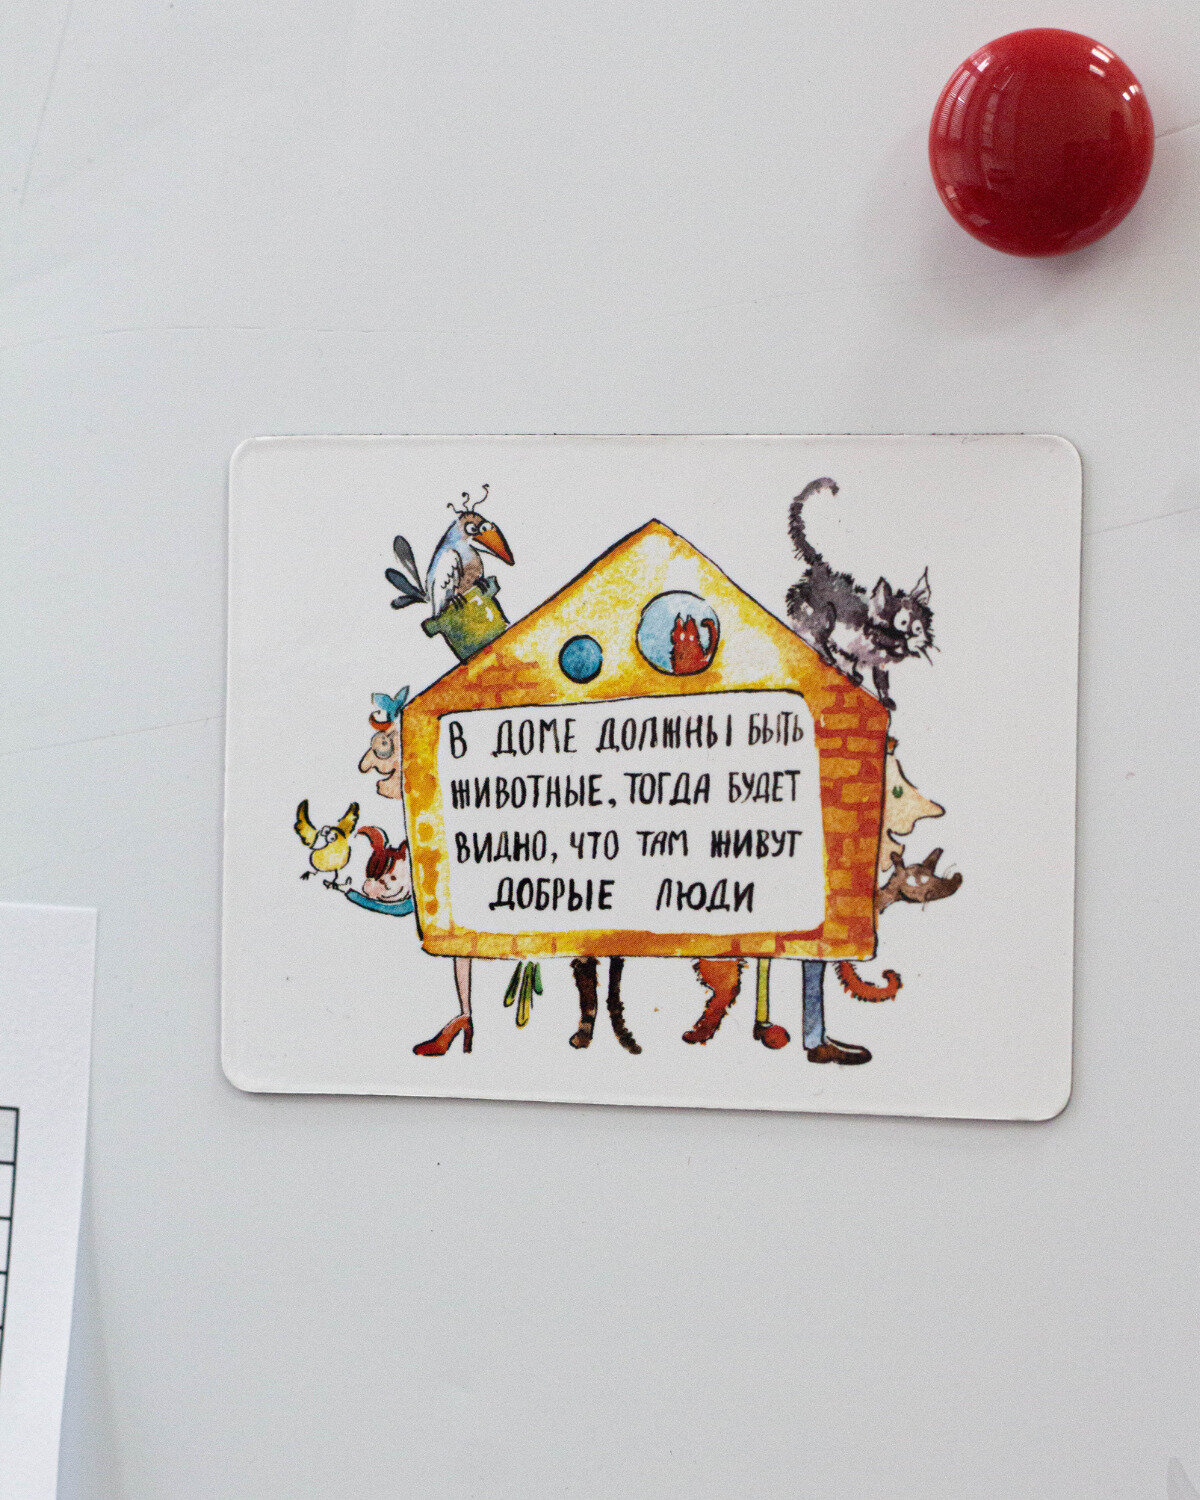 В ДОМЕ ДОЛЖНЫ БЫТЬ
ЖИВОТНЫЕ, ТОГДА БУДЕТ
ВИДНО, ЧТО ТАМ ЖИВУТ
ДОБРЫЕ ЛЮДИ